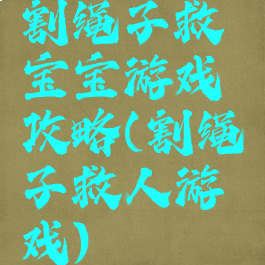 割绳子救
宝宝游戏
攻略(割绳
子救人游
戏)